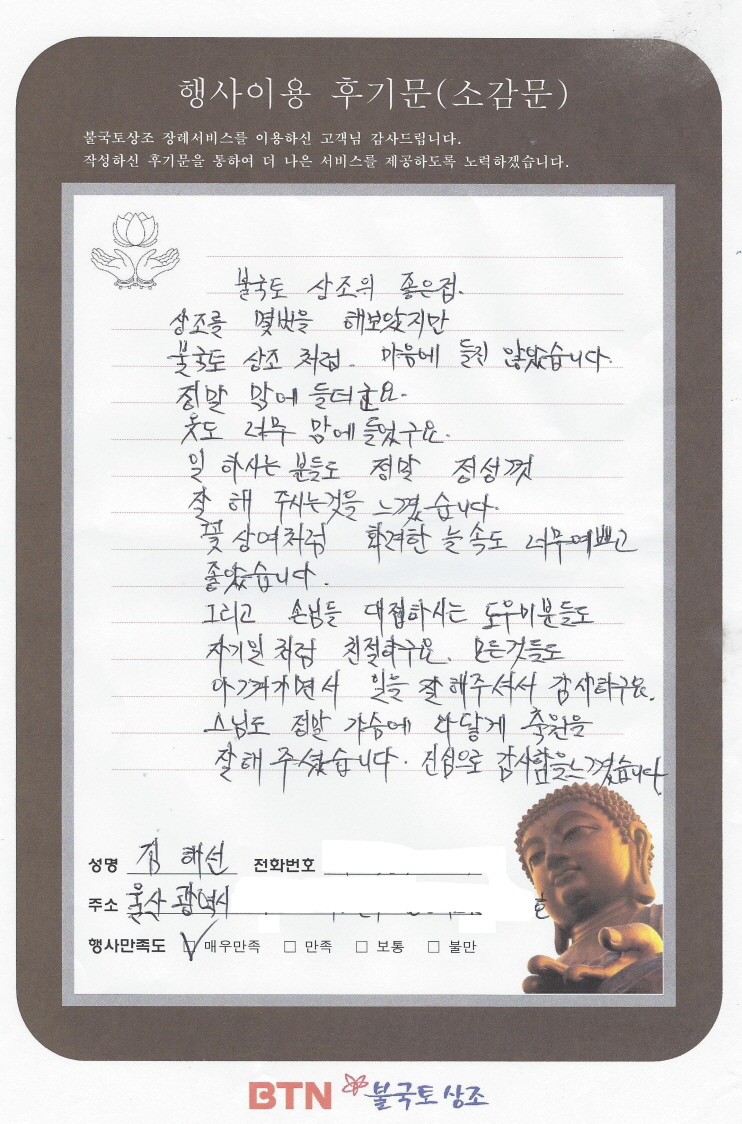 행사이용 후기문(소감문)
불국토상조 장례서비스를 이용하신 고객님 감사드립니다.
작성하신 후기문을 통하여 더 나은 서비스를 제공하도록 노력하겠습니다.
불국토 상조의 좋은점.
상조를 몇번을 해보았지만
불국토 상조 처럼. 마음에 들진 않았습니다.
정말 맘에 들더군요.
옷도 너무 맘에 들었구요.
일 하시는 분들도 정말 정성껏
잘 해 주시는것을 느꼈습니다.
꽃 상여처럼 화려한 늘 속도 너무예쁘고
좋았습니다.
그리고 손님들 대접하시는 도우미분들도
자기일 처럼 친절하구요. 모든것들도
아껴가면서 일을 잘 해주셔서 감사하구요.
스님도 정말 가슴에 와닿게 축원을
잘해 주셨습니다. 진심으로 감사함을느꼈습니다
성명 김해선 전화번호
주소 울산광역시 호
행사만족도 매우만족 만족 보통 불만
BTN 불국토상조